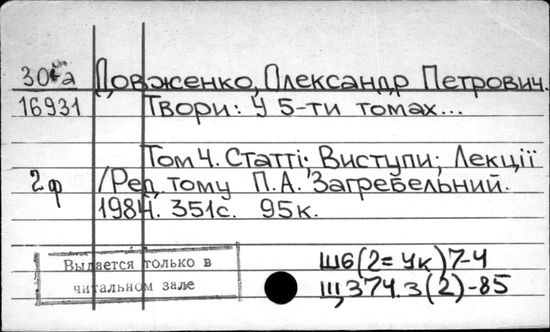 30 ка Довженко, Олександр Петрович.
16931 Твори: У 5-ти томах...
Том 4. Статті; Виступи; Лекції
2ф /Ред. тому П.А. Загребельний.
1984. 351с. 95к.
Выдается только в
читальном зале
Ш6(2=Ук)7-4
Щ374.3(2)-85